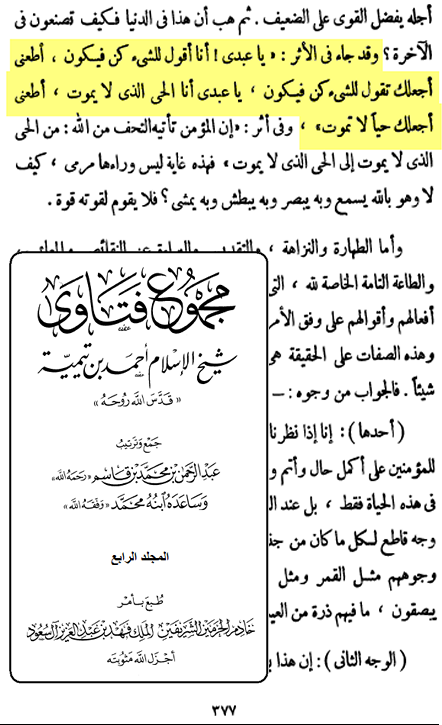 أجله يفضل القوى على الضعيف . ثم هب أن هذا فى الدنيا فكيف تصنعون فى
الآخرة ؟ وقد جاء فى الأثر : « يا عبدى ! أنا أقول للشىء كن فيكون ، أطعنى
أجعلك تقول للشىء كن فيكون ، يا عبدى أنا الحى الذى لا يموت ، أطعنى
أجعلك حياً لا تموت » ، وفى أثر : « إن المؤمن تأتيه التحف من الله : من الحى
الذى لا يموت إلى الحى الذى لا يموت » فهذه غاية ليس وراءها مرمى ، كيف
لا وهو بالله يسمع وبه يبصر وبه يبطش وبه يمشى ؟ فلا يقوم لقوته قوة .
وأما الطهارة والنزاهة ، والتقديس
والطاعة التامة الخاصة لله ، التى
أفعالهم وأقوالهم على وفق الأمر
وهذه الصفات على الحقيقة هى
شيئاً . فالجواب من وجوه : —
( أحدها ) : إنا إذا نظرنا
للمؤمنين على أكمل حال وأتم
فى هذه الحياة فقط ، بل عند
وجه قاطع لكل ما كان من
وجوههم مثل القمر ومثل
يبصقون ، ما فيهم ذرة من
( الوجه الثانى ) : إن هذا
مجموع فتاوى
شيخ الإسلام أحمد بن تيمية
« قدس الله روحه »
جمع وترتيب
عبد الرحمن بن محمد بن قاسم «رحمه الله»
وساعده ابنه محمد «وفقه الله»
المجلد الرابع
طبع بأمر
خادم الحرمين الشريفين الملك فهد بن عبد العزيز آل سعود
أجزل الله مثوبته
٣٧٧